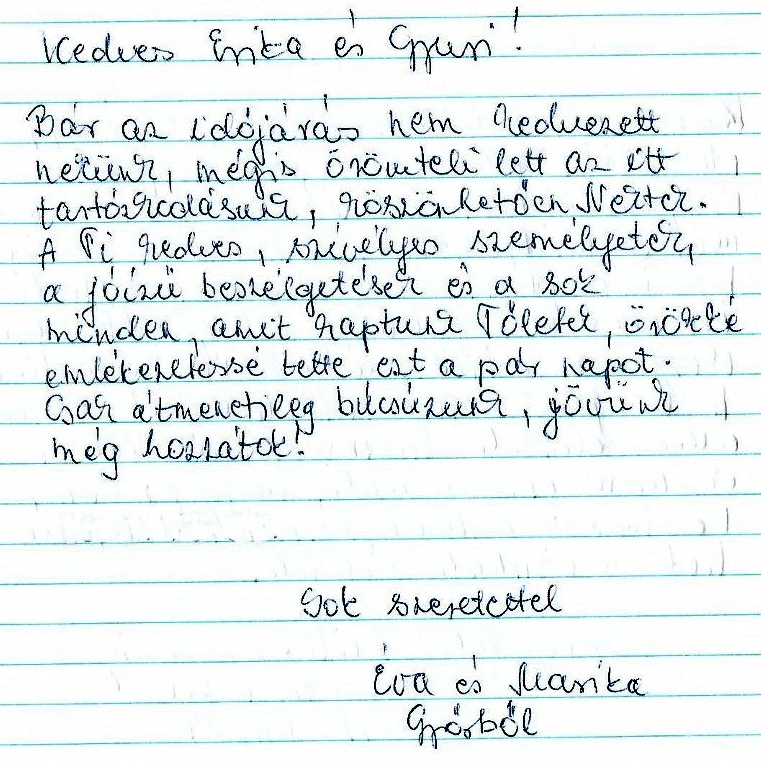 Kedves Erika és Gyuri!
Bár az időjárás nem kedvezett
nekünk, mégis örömteli lett az itt
tartózkodásunk, köszönhetően Nektek.
A Ti kedves, szívélyes személyetek,
a jóízű beszélgetések és a sok
minden, amit kaptunk Tőletek, örökké
emlékezetessé tette ezt a pár napot.
Csak átmenetileg búcsúzunk, jövünk
még hozzátok!
Sok szeretettel
Éva és Marika
Győrből